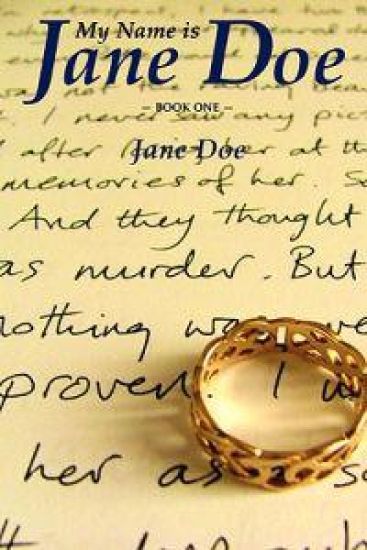 My Name is
Jane Doe
– BOOK ONE –
Jane Doe
I never saw any pic
after her at the
memories of her. So
And they thought
as murder. But
nothing was
proven. I w
her as a so